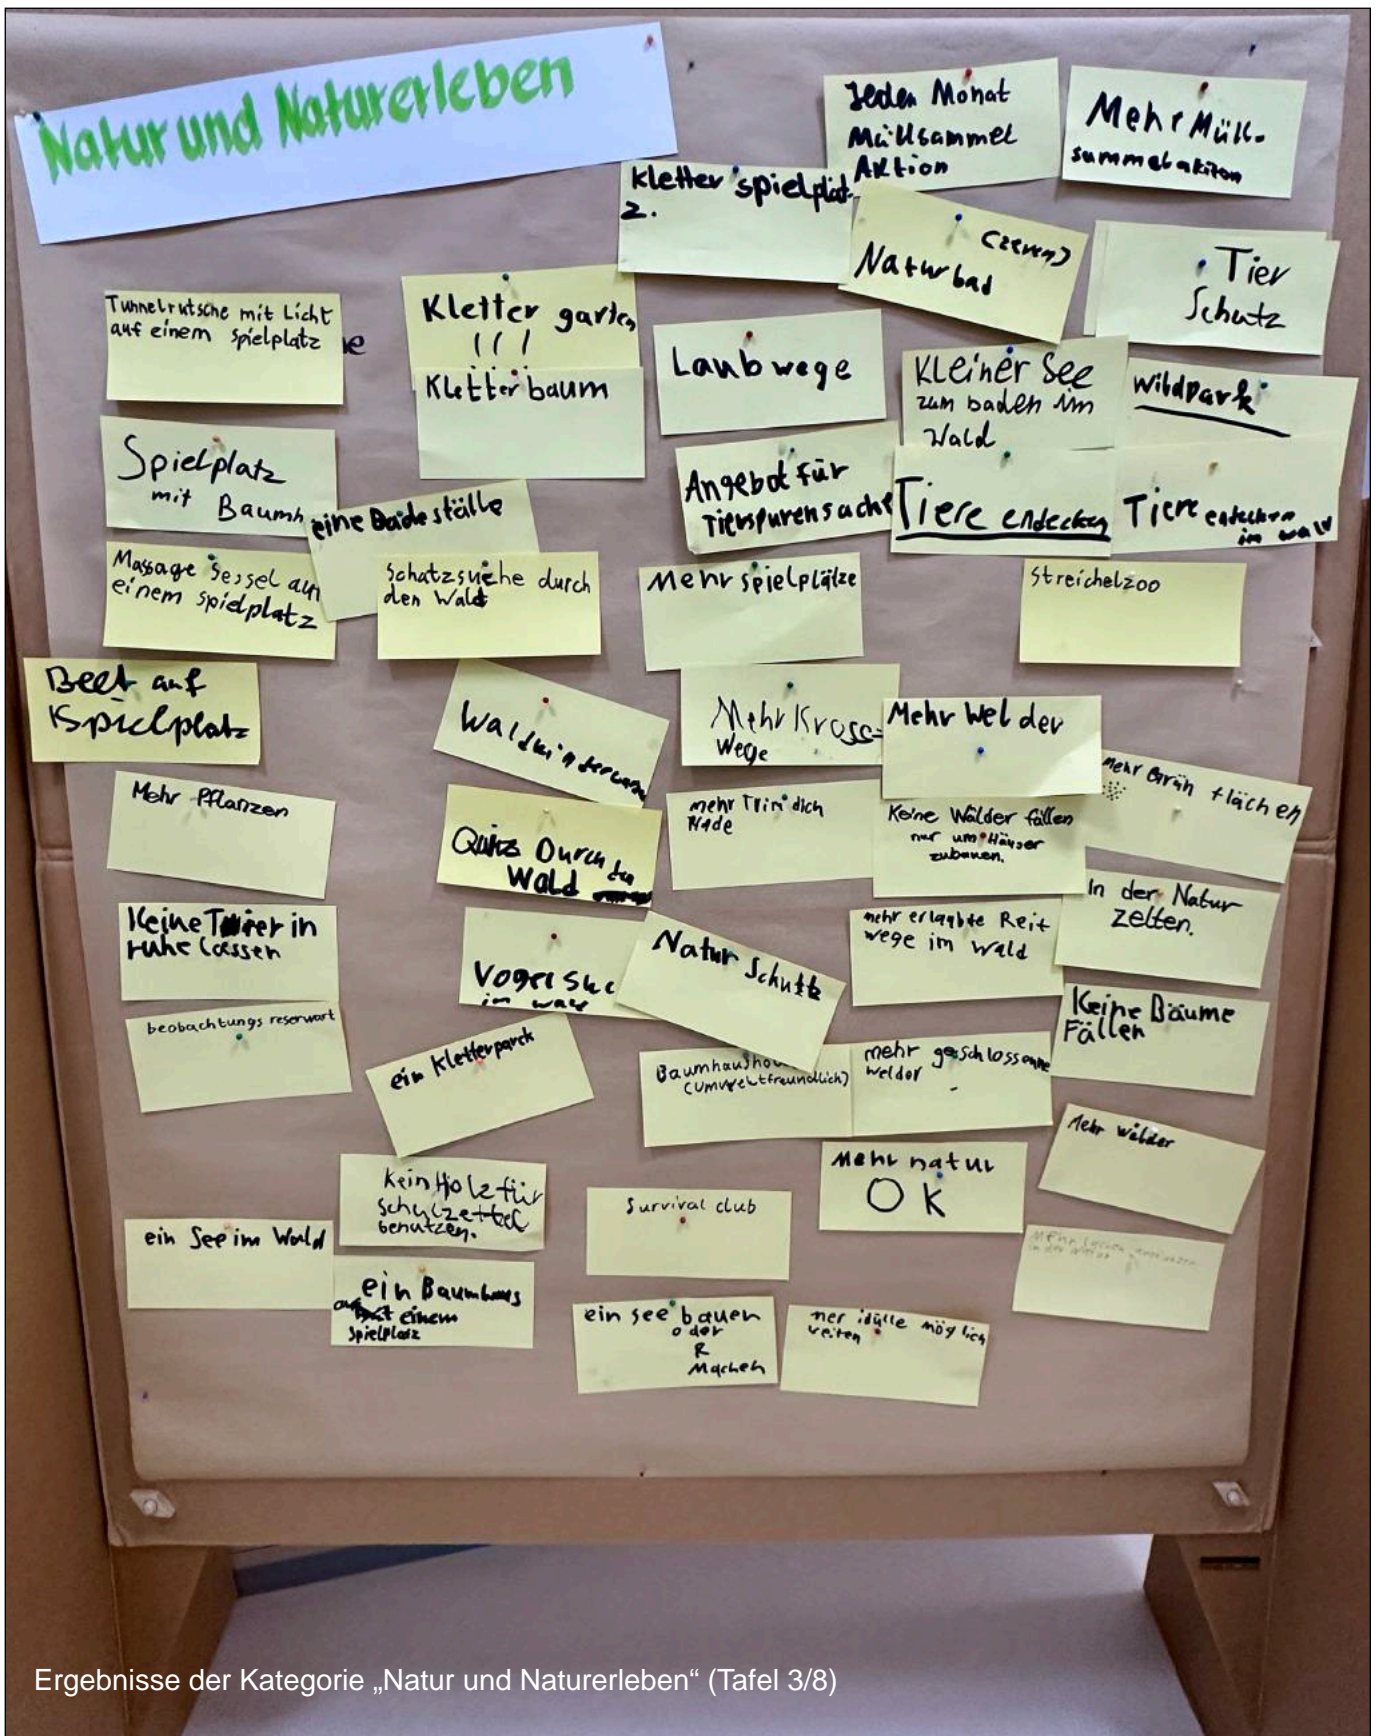 Natur und Naturerleben
Jeden Monat
Müllsammel
Aktion
Mehr Müll-
summelakiton
Kletter spielplat
z.
(zeven)
Naturbad
Tier
Schutz
Tunnelrutsche mit Licht
auf einem spielplatz
Kletter garten
!!!
Kletterbaum
Laubwege
Kleiner See
zum baden im
Wald
Wildpark
Spielplatz
mit Baumh
eine Badeställe
Angebot für
Tierspurensuche
Tiere endecken
Tiere
im wald
Massage Sessel auf
einem spielplatz
Schatzsuche durch
den Wald
Mehr spielplätze
Streichelzoo
Beet auf
Spielplatz
Mehr Kross-
Wege
Mehr Welder
mehr Grün flächen
Mehr Pflanzen
Quiz Durch den
Wald
mehr Trim dich
Keine Wälder fällen
nur um Häuser
zubauen.
In der Natur
zelten.
Keine Tier in
ruhe lassen
Vogel
im
Natur Schutz
mehr erlaubte Reit
wege im wald
Keine Bäume
Fällen
beobachtungs reserwart
ein Kletterparck
Baumhausho
(umweltfreundlich)
mehr geschlossenne
welder
Mehr wälder
Kein Holz für
Schulzettel
benutzen.
Survival club
Mehr natur
OK
ein See im Wald
ein Baumhaus
auf einem
Spielplatz
ein see bauen
oder
R
Machen
mer idülle möglich
reiten
in der Natur
Ergebnisse der Kategorie „Natur und Naturerleben“ (Tafel 3/8)